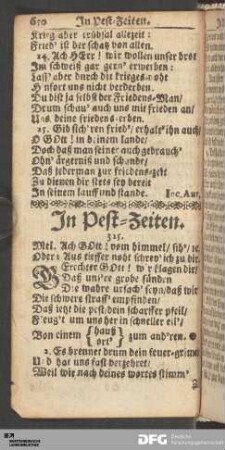 610 In Pest-Zeiten.
Krieg aber trübsal allezeit:
Fried' ist der schatz von allen.
14. Ach HErr! wir wollen unser brot
Im schweiß gar gern' erwerben:
Lass' aber durch die krieges-noht
Hinfort uns nicht verderben.
Du bist ja selbst der Friedens-Man/
Drum schau' auch uns mit frieden an/
Uns deine friedens-erben.
15. Gib sich'ren fried'/ erhalt' ihn auch/
O GOtt! in deinem lande/
Doch daß man seiner auch gebrauch'
Ohn' ärgerniß und schande/
Daß jederman zur friedens-zeit
Zu dienen dir stets sey bereit
In seinem lauff und stande. Inc. Aut.
In Pest-Zeiten.
325.
Mel. Ach GOtt! vom himmel/ sih'/ ic.
Oder: Aus tieffer noht schrey' ich zu dir.
GErechter GOtt! wir klagen dir/
Daß uns're grobe sünden
Die wahre ursach' seyn/ daß wir
Die schwere straff' empfinden/
Daß jetzt die pest dein scharffer pfeil/
Fleug't um uns her in schneller eil'/
Von einem {hauß / ort'} zum andren.
2. Es brennet drum dein feuer-grim̃
Und hat uns fast verzehret/
Weil wir nach deines wortes stimm'